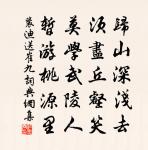 歸山深淺去
須盡丘壑美
莫學武陵人
暫游桃源里
裴迪送崔九詞典網集